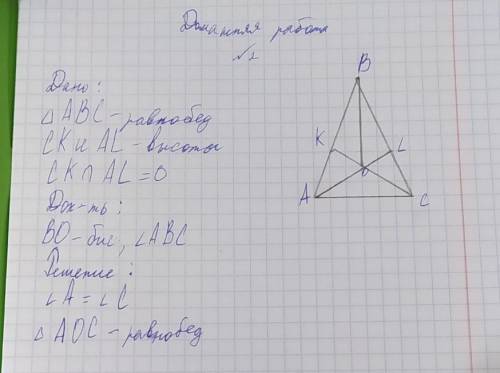 Домашняя работа
№1
Дано:
△ABC - равнобед
CK и AL - высоты
CK ∩ AL = O
Док-ть:
BO - бис, ∠ABC
Решение:
∠A = ∠C
△AOC - равнобед
B
K
L
O
A
C